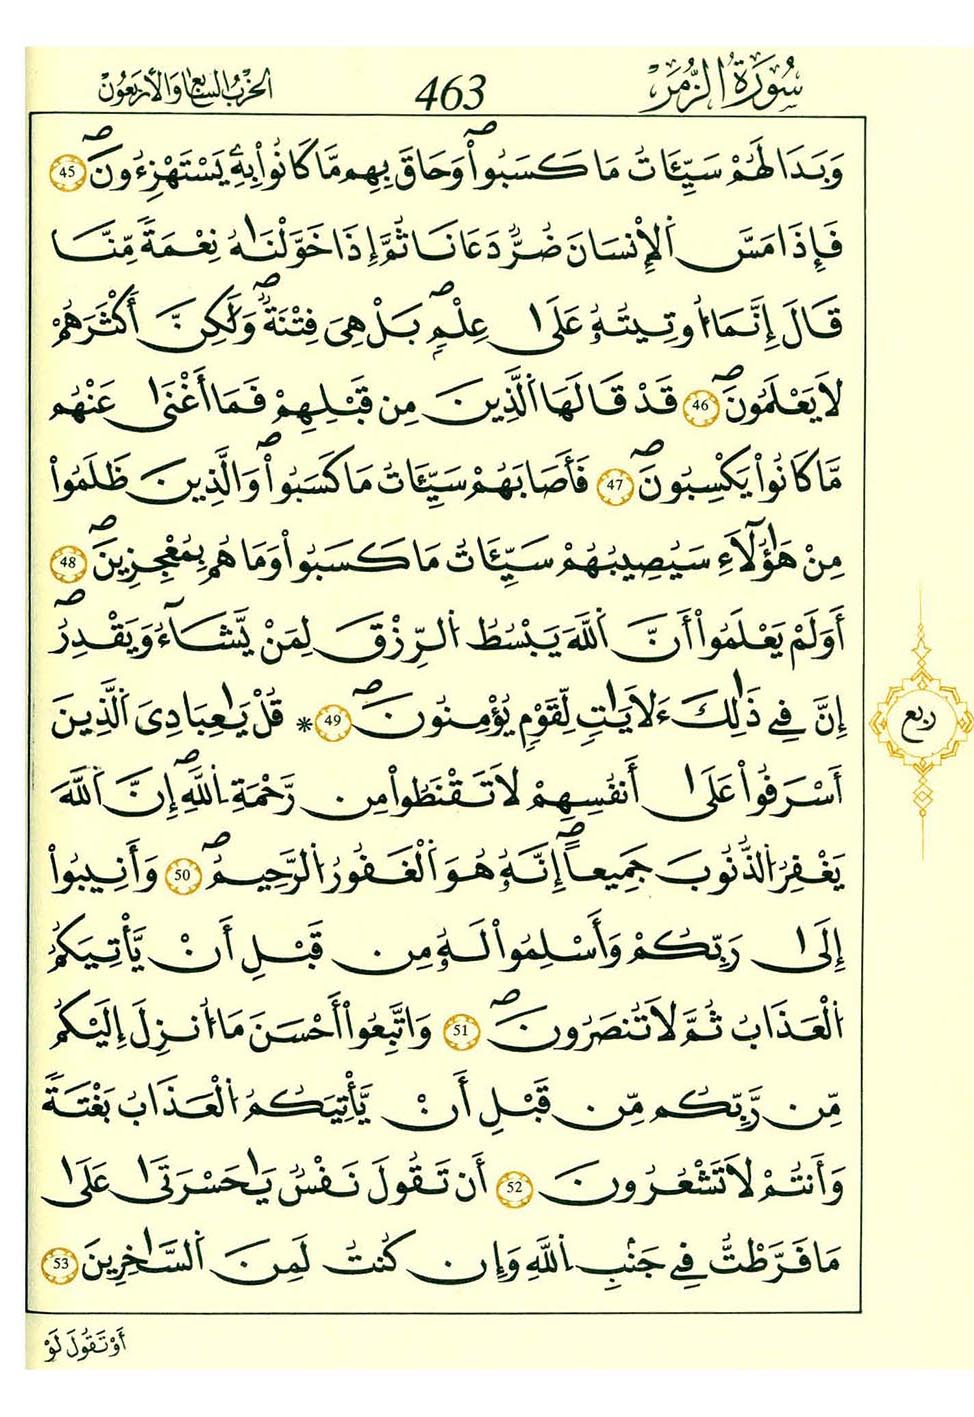 سُورَةُ الزُّمَرِ
463
الحِزْبُ السَّابِعُ وَالأَرْبَعُونَ
وَبَدَا لَهُمْ سَيِّـَٔاتُ مَا كَسَبُواْۖ وَحَاقَ بِهِم مَّا كَانُواْ بِهِۦ يَسْتَهْزِءُونَۖ 45
فَإِذَا مَسَّ اَلْإِنسَانَ ضُرٌّ دَعَانَا ثُمَّ إِذَا خَوَّلْنَٰهُ نِعْمَةً مِّنَّا
قَالَ إِنَّمَا أُوتِيتُهُۥ عَلَىٰ عِلْمٍۖ بَلْ هِيَ فِتْنَةٌۖ وَلَٰكِنَّ أَكْثَرَهُمْ
لَا يَعْلَمُونَۖ 46 قَدْ قَالَهَا اَلَّذِينَ مِن قَبْلِهِمْ فَمَا أَغْنَىٰ عَنْهُم
مَّا كَانُواْ يَكْسِبُونَۖ 47 فَأَصَابَهُمْ سَيِّـَٔاتُ مَا كَسَبُواْۖ وَالَّذِينَ ظَلَمُواْ
مِنْ هَٰؤُلَآءِ سَيُصِيبُهُمْ سَيِّـَٔاتُ مَا كَسَبُواْ وَمَا هُم بِمُعْجِزِينَۖ 48
أَوَلَمْ يَعْلَمُواْ أَنَّ اَللَّهَ يَبْسُطُ اُلرِّزْقَ لِمَنْ يَّشَآءُ وَيَقْدِرُۖ
إِنَّ فِي ذَٰلِكَ ءَلَايَٰتٍ لِّقَوْمٍ يُؤْمِنُونَۖ 49 * قُلْ يَٰعِبَادِيَ اَلَّذِينَ
أَسْرَفُواْ عَلَىٰ أَنفُسِهِمْ لَا تَقْنَطُواْ مِن رَّحْمَةِ اِللَّهِۖ إِنَّ اَللَّهَ
يَغْفِرُ اُلذُّنُوبَ جَمِيعاًۖ إِنَّهُۥ هُوَ اَلْغَفُورُ اُلرَّحِيمُۖ 50 وَأَنِيبُواْ
إِلَىٰ رَبِّكُمْ وَأَسْلِمُواْ لَهُۥ مِن قَبْلِ أَنْ يَّأْتِيَكُمُ
اُلْعَذَابُ ثُمَّ لَا تُنصَرُونَۖ 51 وَاتَّبِعُواْ أَحْسَنَ مَا أُنزِلَ إِلَيْكُم
مِّن رَّبِّكُم مِّن قَبْلِ أَنْ يَّأْتِيَكُمُ اُلْعَذَابُ بَغْتَةً
وَأَنتُمْ لَا تَشْعُرُونَ 52 أَن تَقُولَ نَفْسٌ يَٰحَسْرَتَىٰ عَلَىٰ
مَا فَرَّطْتُ فِي جَنۢبِ اِللَّهِ وَإِن كُنتُ لَمِنَ اَلسَّٰخِرِينَ 53
ربع
أَوْ تَقُولَ لَوْ